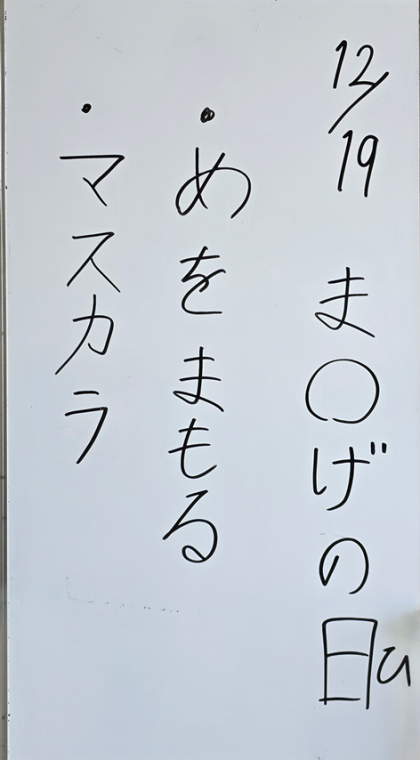 12/19 ま〇げの日ひ
・めをまもる
・マスカラ